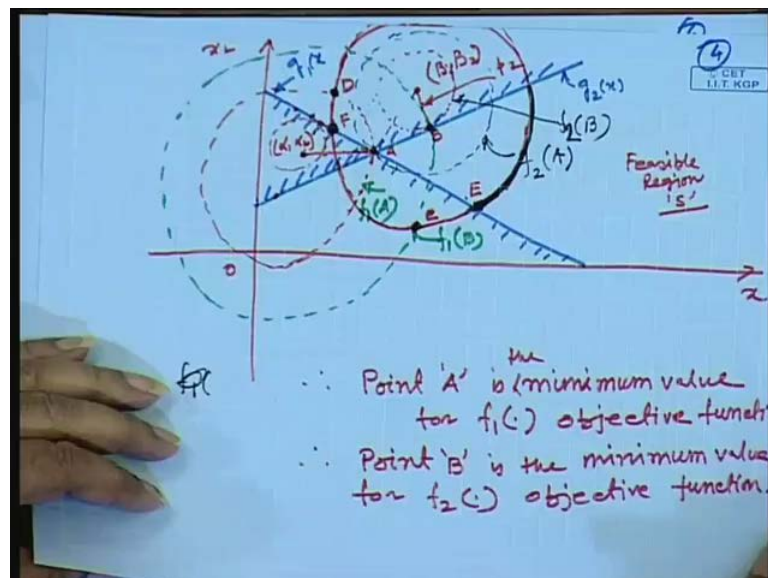 4
© CET
I.I.T. KGP
x₂
g₁(x
(B₁, B₂)
r₂
g₂(x)
D
F
(α₁, α₂)
A
B
f₂(B)
f₂(A)
Feasible
Region
'S'
f₁(A)
E
C
f₁(B)
0
x
∴ Point 'A' is the mimimum value
for f₁(·) objective functi
∴ Point 'B' is the minimum value
for f₂(·) objective function.